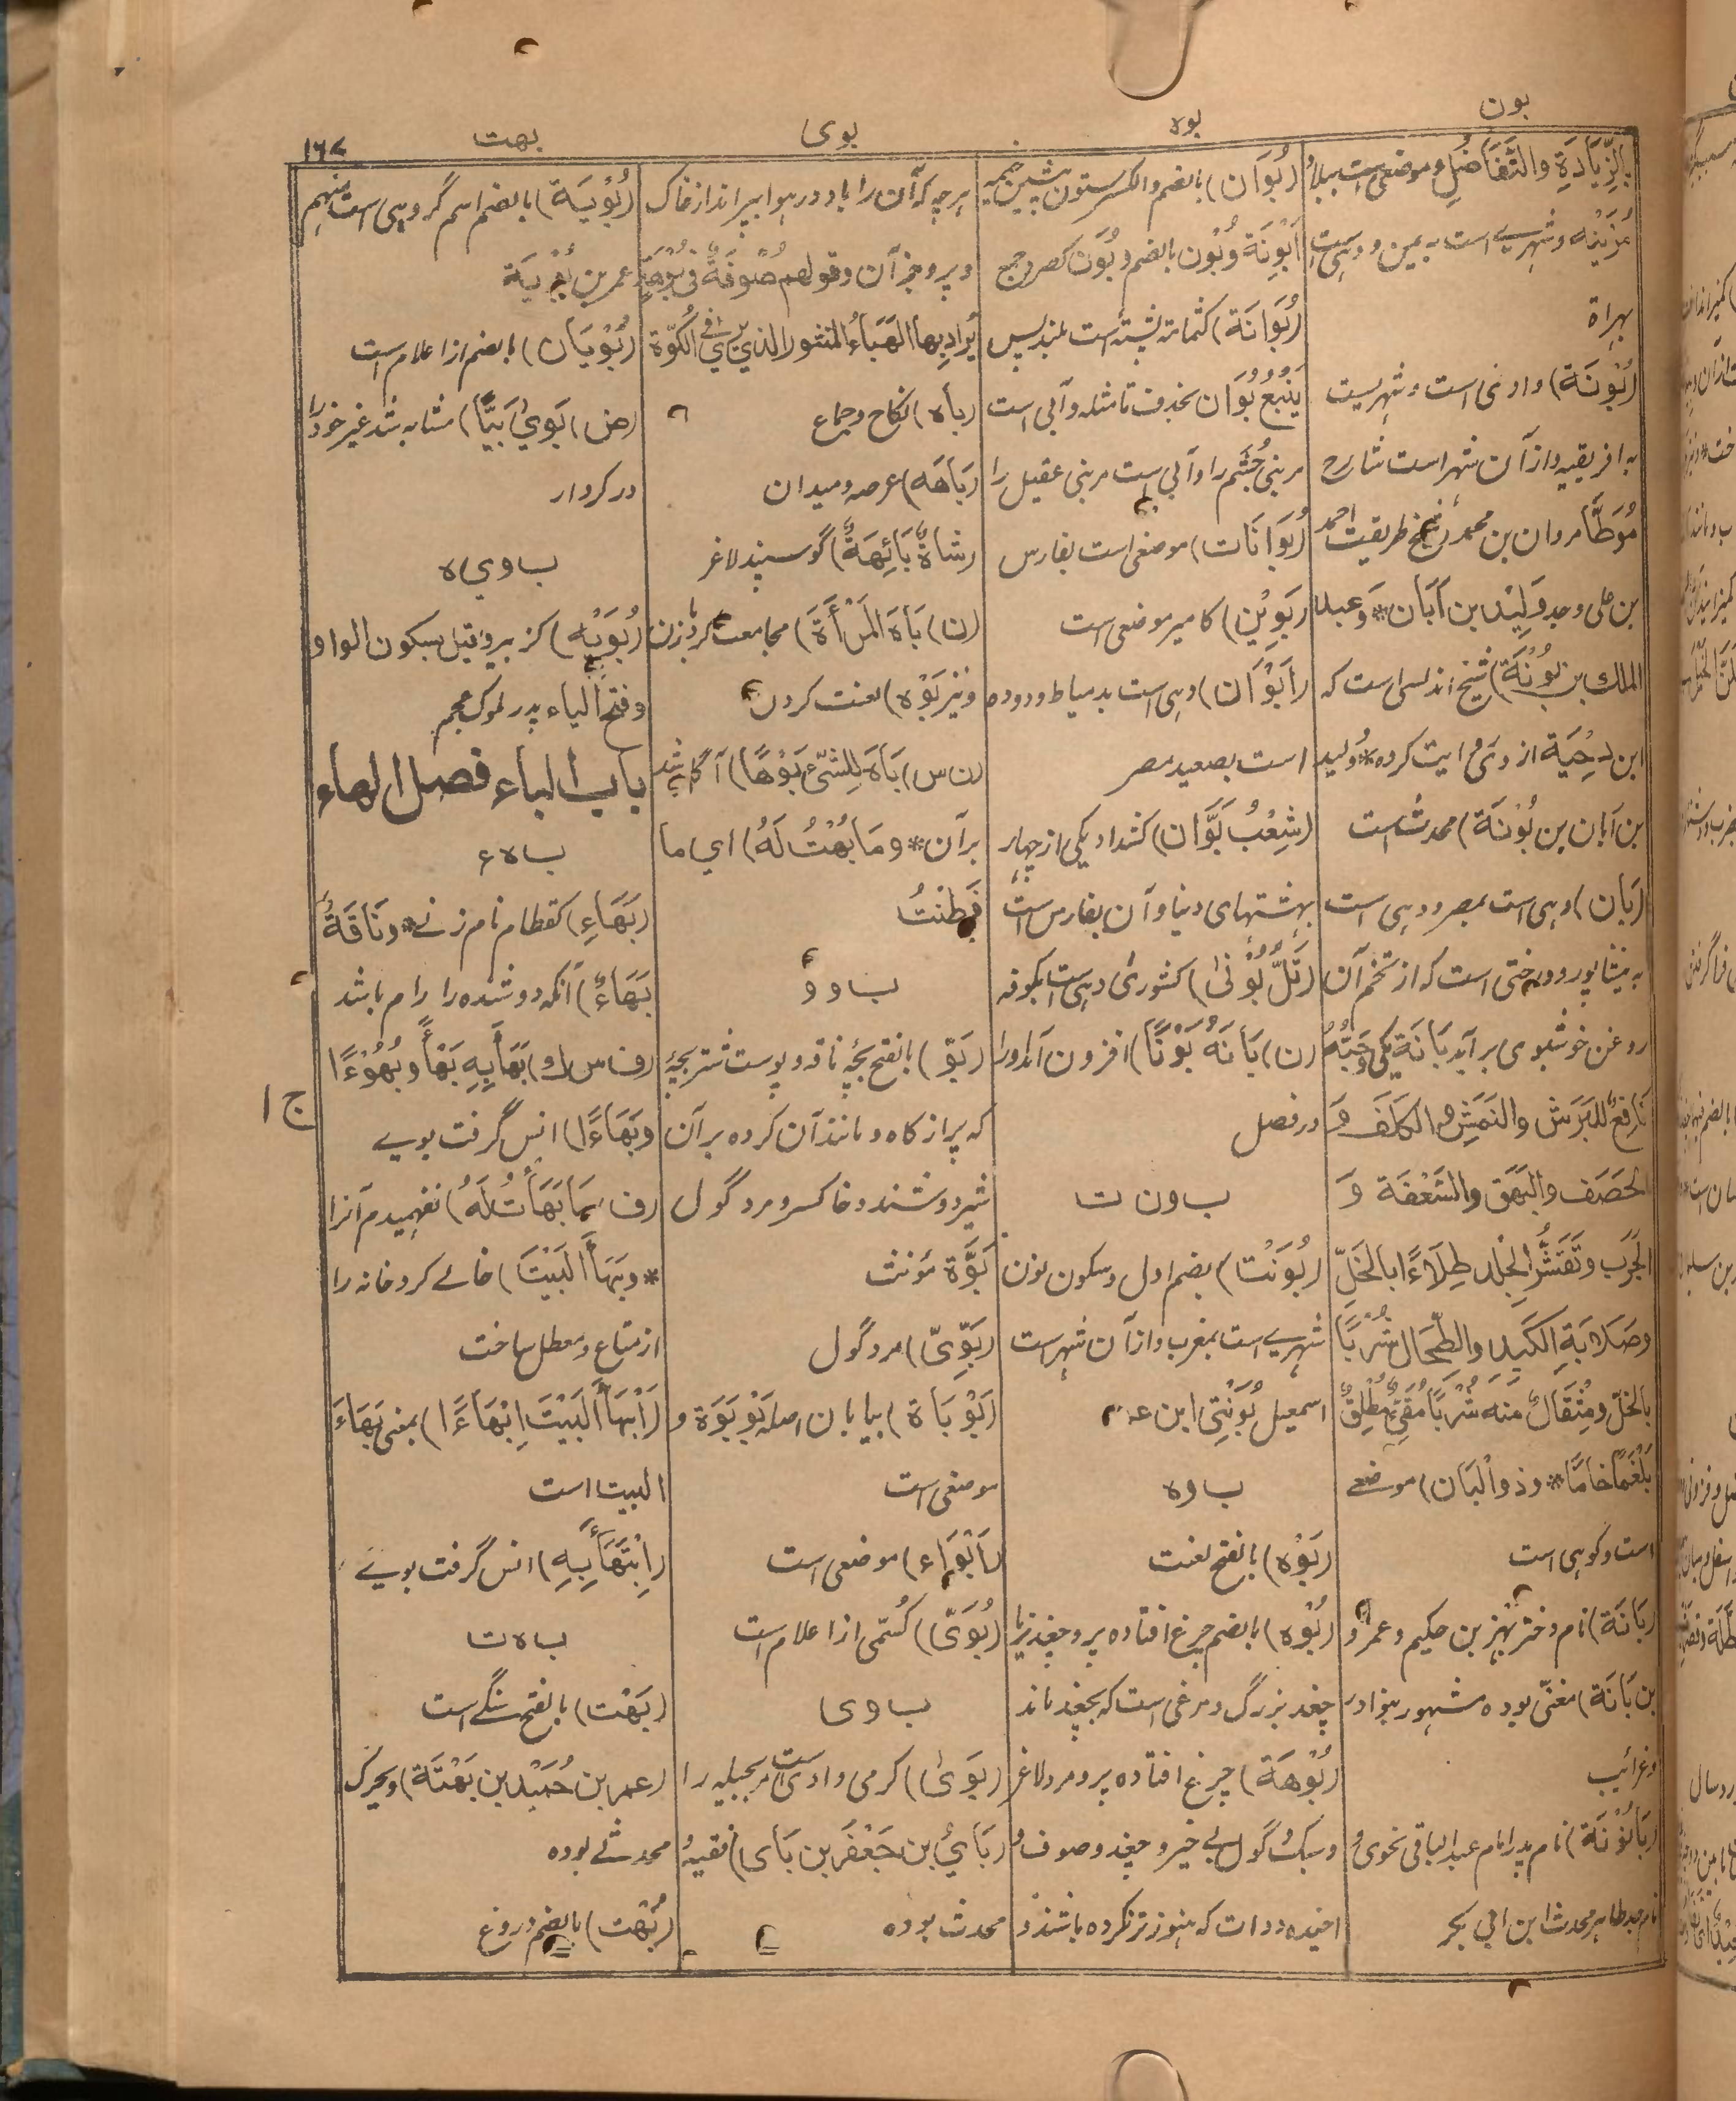 بون
بوه
بوی
بهت
۱۶۷
بالزِّيَادَةِ والتَّفَاضُلِ و موضعی است ببلاد
مُزَيْنَه و شهریست به یمن و دهی است
بهراة
(بُوْنَة) وادئی است و شهریست
به افریقیه و از آن شهر است شارح
مُوَطَّأ مروان بن محمد و شیخ طریقت احمد
بن علی وجد وَلِيْد بن اَبَان * وَعبد
الملك بن بُوْنَة) شیخ اندلسی است که
ابن دِحْيَة از وی روایت کرده * و وَليد
بن اَبان بن بُوْنَة) محدث است
(بَان) دهی است بمصر و دهی است
به نیشاپور و درختی است که از تخم آن
روغن خوشبوی بر آید بَانَة یکی وَحَبُّهُ
نَافِعٌ لِلْبَرَشِ والنَمَشِ والكَلَفِ وَ
الحَصَفِ والبَهَقِ والسَّعْفَة وَ
الجَرَبِ وَتَقَشُّرِ الجِلْد طِلَاءً ا بالخَلِّ
وصَلَابَةِ الكَبِدِ والطِّحَال شُرْبًا
بالخَلِّ ومِثْقَالٌ منه شُرْبًا مُقَيِّئٌ مُطْلِقٌ
بَلْغَمًا خامًا * وذو الْبَان) موضعی
است و کوهی است
(بَانَة) نام دختر بَهْز بن حکیم و عمرو
بن بَانَة) مغنّی بوده مشهور بنوادر
وغرائب
(بَابُوْنَة) نام پدر امام عبد الباقی نحوی و
نام جد طاهر محدث ابن ابی بکر
(بُوَان) بالضم والکسر ستون پیشین خیمه
اَبْوِنَة وبُوْن بالضم و بُوَن کصرد جمع
(بُوَانَة) کثمامة پشته است بلند پس
يَنْبُعُ بُوَان بحذف تا مثله و آبی است
مر بنی جُشَم را و آبی است مر بنی عقیل را
(بُوَانَات) موضعی است بفارس
(بَوِيْن) کامیر موضعی است
(اَبْوَان) دهی است بدمیاط و دو ده
است بصعید مصر
(شِعْبُ بَوَّان) کشداد یکی از چهار
بهشتهای دنیا و آن بفارس است
(تَلُّ بُوْنٰی) کشوری دهی است بکوفه
(ن) بَانَهُ بَوْنًا) افزون آمد او را
در فصل
ب و ن ت
(بُوَنْت) بضم اول و سکون نون
شهریست بمغرب و از آن شهر است
اسمعیل بُوَنْتِی ابن عمر
ب و ه
(بَوْه) بالفتح لعنت
(بُوْه) بالضم چرغ افتاده پر و چغد نر یا
چغد بزرگ و مرغی است که بچغد ماند
(بُوْهَة) چرغ افتاده پر و مرد لاغر
و سبک و گول بی خیر و چغد و صوف
دوات که هنوز تر نکرده باشند و
هر چه که آن را باد در هوا بپراند از خاک
و پر و جز آن وقولهم صُوْفَةٌ فی بُوْهَةٍ
يُرَادُ بها الهَبَاءُ المنثور الذي يُرَى في الكُوَّة
(بَاه) نکاح و جماع
(بَاهَه) عرصه و میدان
(شاةٌ بَائِهَةٌ) گوسپند لاغر
(ن) بَاهَ المَرْأَةَ) مجامعت کرد با زن
و نیز بَوْه) لعنت کردن
(ن س) بَاهَ لِلشَّيْءِ بَوْهًا) آگاه شد
بر آن * ومَا بُهْتُ لَهُ) ای ما
فَطَنْتُ
ب و و
(بَوّ) بالفتح بچۀ ناقه و پوست شتر بچۀ
که پر از کاه و مانند آن کرده بر آن
شیر دوشند و خاکستر و مرد گول
بَوَّة مؤنث
(بَوِّيّ) مرد گول
(بَوْبَاة) بیابان اصله بَوْبَوَة و
موضعی است
(اَبْوَاء) موضعی است
(بُوَيّ) کسُمَی از اعلام است
ب و ی
(بَوٰی) کرمی وادی است مر بجیله را
(بَايُ بن جَعْفَر بن بَای) فقیه و
محدث بوده
(بُوْيَة) بالضم اسم گروهی است منهم
عمر بن بُوْيَة
(بُوْيَان) بالضم از اعلام است
(ض) بَوِيَ بَيًّا) مشابه شد غیر خود را
در کردار
ب و ي ه
(بُوَيْه) کزبیر و قیل بسکون الواو
و فتح الیاء پدر ملوک عجم
باب الباء فصل الهاء
ب ه ء
(بَهَاءِ) کقطام نام زنی * و نَاقَةٌ
بَهَاءٌ) آنکه دوشنده را رام باشد
(ف س ك) بَهَأَ بِهِ بَهْأً و بُهُوْءًا
و بَهَاءً ا) انس گرفت بوی
(ف) مَا بَهَأْتُ لَهُ) نفهمیدم آنرا
* و بَهَأَ البَيْتَ) خالی کرد خانه را
از متاع و معطل ساخت
(اَبْهَأَ البَيْتَ اِبْهَاءً ا) بمعنی بَهَأَ
البیت است
(اِبْتَهَأَ بِهِ) انس گرفت بوی
ب ه ت
(بَهْت) بالفتح سنگی است
(عمر بن حُمَيْد بن بَهْتَة) ویحرک
محدثی بوده
(بُهْت) بالضم دروغ
ج ا